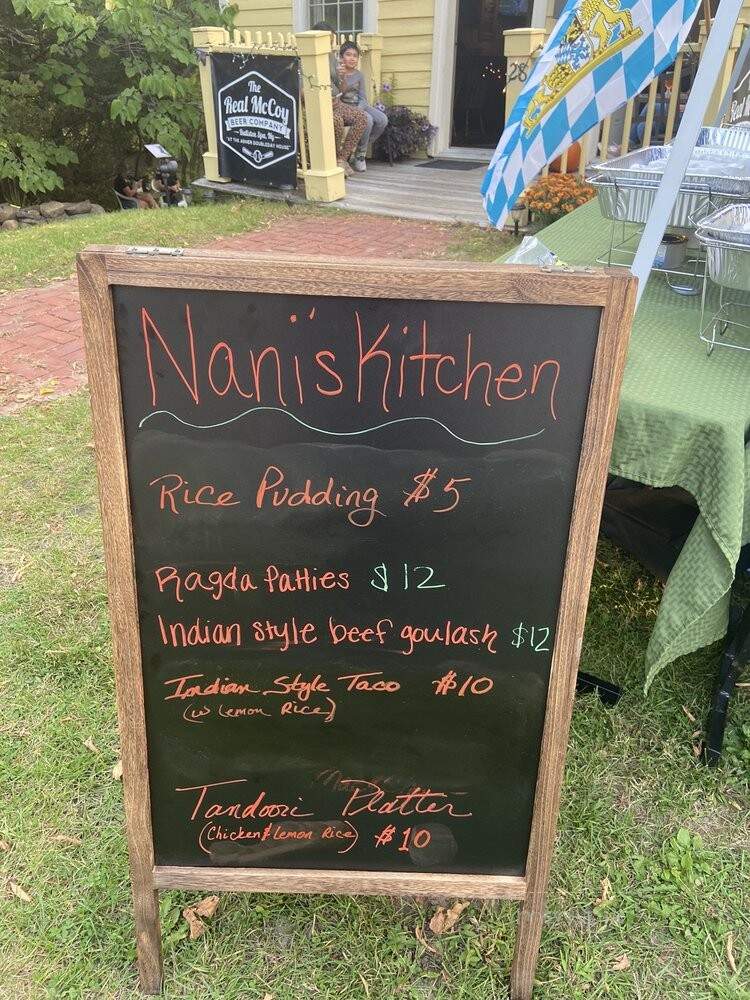 The
Real McCoy
BEER COMPANY
Ballston Spa, Ny
"AT THE ABNER DOUBLEDAY HOUSE"
28
Nani's Kitchen
Rice Pudding $5
Ragda Patties $12
Indian style beef goulash $12
Indian Style Taco $10
(w Lemon Rice)
Tandoori Platter
(Chicken & Lemon Rice) $10